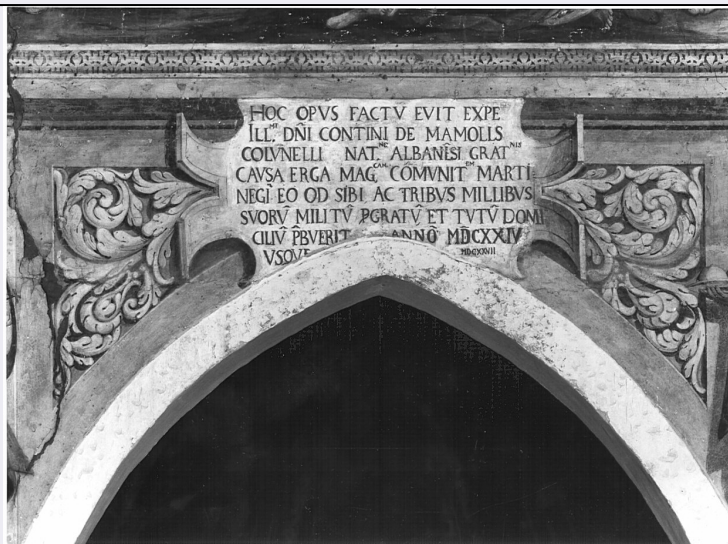 HOC OPVS FACTV EVIT EXPE
ILL.MI DÑI CONTINI DE MAMOLLS
COLVNELLI NAT.NE ALBANĒSI GRAT NIS
CAVSA ERGA MAG.CAM COMVNIT EM MARTI
NEGI EO OD SIBI AC TRIBVS MILLIBVS
SVORV̄ MILITV̄ PGRATV̄ ET TVTV̄ DOMI
CILIV̄ P̄BVERIT ANNO MDCXXIV
VSQVE MDCXXVII